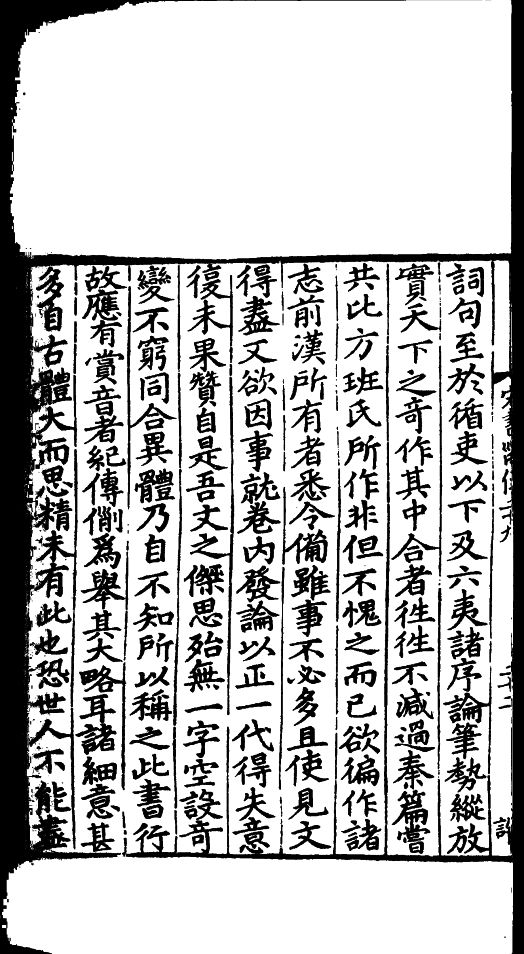 詞句至於循吏以下及六夷諸序論筆勢縱放
實天下之奇作其中合者徃徃不減過秦篇嘗
共比方班氏所作非但不愧之而已欲徧作諸
志前漢所有者悉令備雖事不必多且使見文
得盡又欲因事就卷内發論以正一代得失意
復未果贊自是吾文之傑思殆無一字空設竒
變不窮同合異體乃自不知所以稱之此書行
故應有賞音者紀傳例爲舉其大略耳諸細意甚
多自古體大而思精未有此也恐世人不能盡